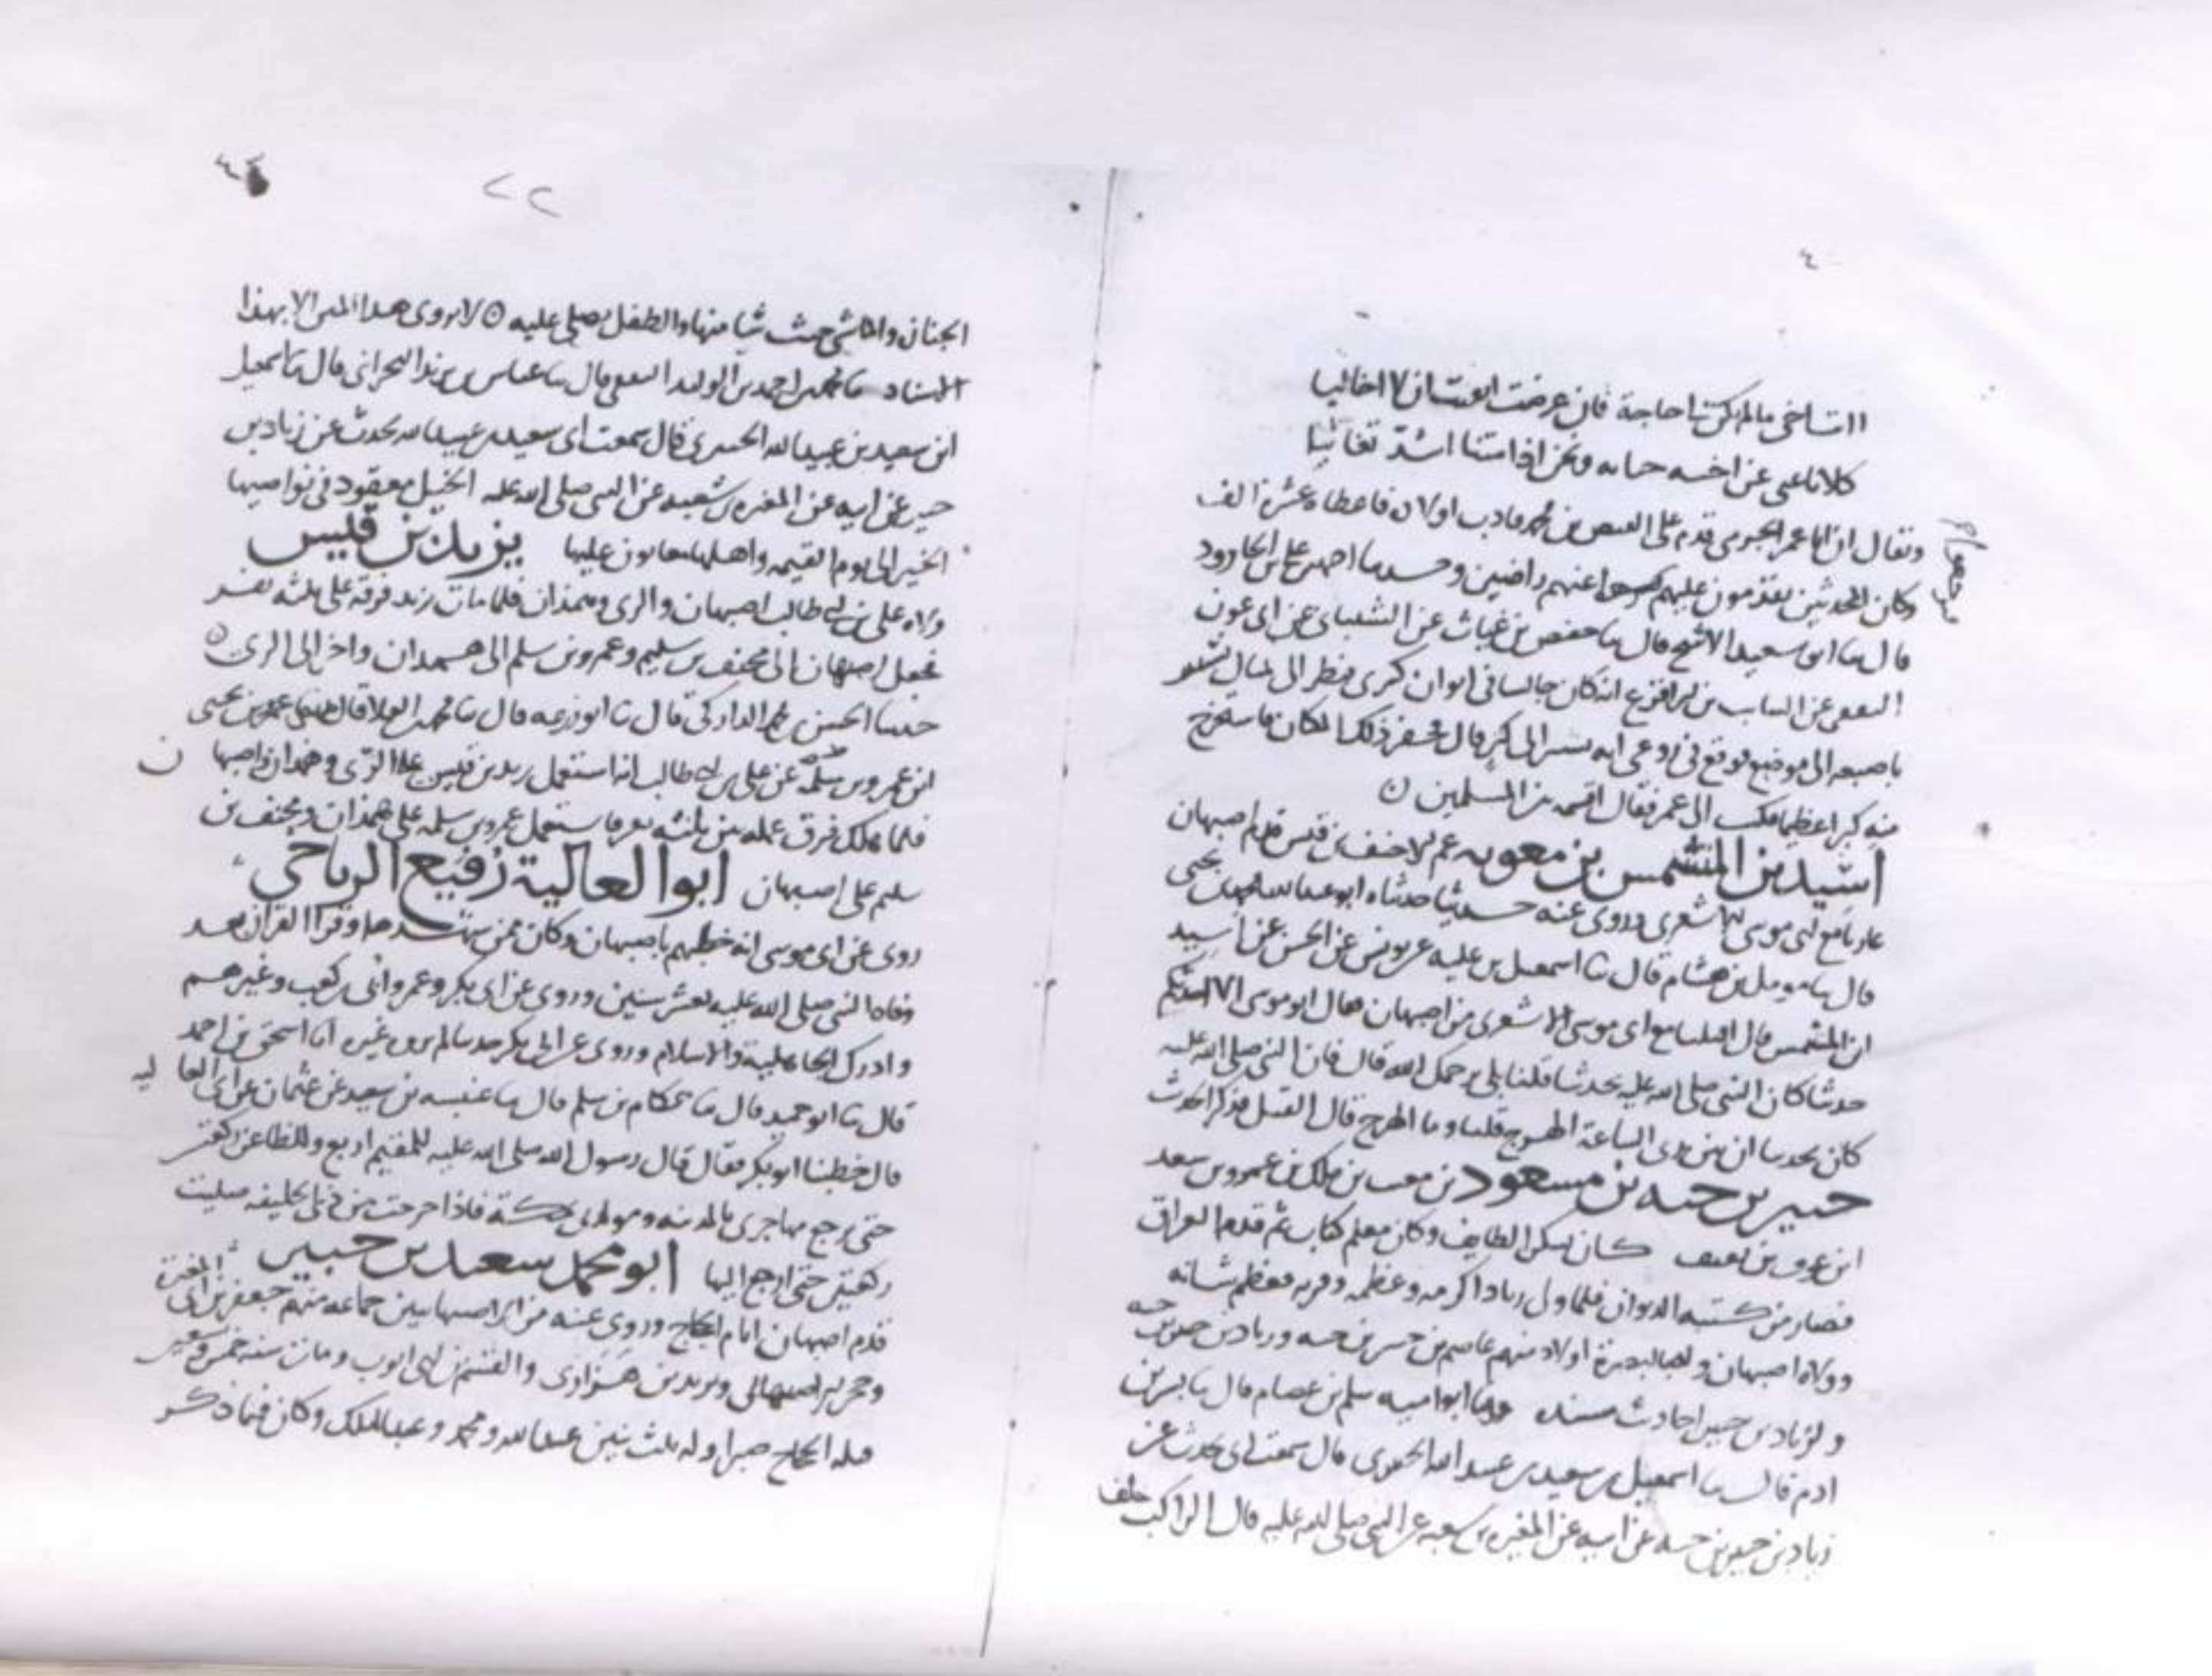 ٤
اانت اخي ما لم تكن لنا حاجة فان عرضت ايقنت ان لا اخا ليا
كلانا غني عن اخيه حياته ونحن اذا متنا اشد تغانيا
ويقال ان ابا عمر الجرمي قدم على الفيض بن محمد فادب اولاده فاعطاه عشرة الف
وكان المحدثين يقدمون عليهم عنهم راضين وحدثنا احمد بن علي بن الجارود
قال ثنا ابو سعيد الاشج قال ثنا حفص بن غياث عن الشيباني عن ابي عون
الثقفي عن السايب بن الاقرع انه كان جالسا في ايوان كسرى فنظر الى تمثال يشير
باصبعه الى موضع فوقع في روعي انه يشير الى كنز قال فحفر ذلك المكان فاستخرج
منه كنزا عظيما فكتب الى عمر فقال اقسمه بين المسلمين ه
اسيد بن المتشمس بن معوية عم الاحنف بن قيس قدم اصبهان
غازيا مع ابي موسى الاشعري وروى عنه حديثا حدثناه ابو عبد الله محمد بن يحيى
قال ثنا مومل بن هشام قال ثنا اسمعيل بن علية عن يونس عن الحسن عن اسيد
ابن المتشمس قال اقبلنا مع ابي موسى الاشعري من اصبهان فقال ابو موسى الا احدثكم
حديثا كان النبي صلى الله عليه يحدثنا قلنا بلى يرحمك الله قال فان النبي صلى الله عليه
كان يحدثنا ان بين يدي الساعة الهرج قلنا وما الهرج قال القتل فذكر الحديث
جبير بن حيه بن مسعود بن معتب بن ملك بن عمرو بن سعد
ابن عوف بن ثقيف كان يسكن الطايف وكان معلم كتاب ثم قدم العراق
فصار من كتبة الديوان فلما ولي زياد اكرمه وعظمه وقربه فعظم شانه
وولاه اصبهان وله بالبصرة اولاد منهم عاصم بن جبير بن حيه وزياد بن جبير بن حيه
ولزياد بن جبير احاديث مسنده حدثنا ابو اميه سلم بن عصام قال ثنا بشر بن
ادم قال ثنا اسمعيل بن سعيد بن عبيد الله الجبيري قال سمعت ابي يحدث عن
زياد بن جبير بن حيه عن ابيه عن المغيره بن شعبه عن النبي صلى الله عليه قال الراكب خلف
٢٢
الجنازة والماشي حيث شيا منها والطفل يصلى عليه ه لا يروى هذا المتن الا بهذا
الاسناد ثنا محمد بن احمد بن الوليد الثقفي قال ثنا عباس بن يزيد البحراني قال ثنا اسمعيل
ابن سعيد بن عبيد الله الجبيري قال سمعت ابي سعيد بن عبيد الله يحدث عن زياد بن
جبير عن ابيه عن المغيره بن شعبه عن النبي صلى الله عليه الخيل معقود في نواصيها
الخير الى يوم القيمه واهلها معانون عليها يزيد بن قيس
ولاه علي بن ابي طالب اصبهان والري وهمذان فلما مات يزيد فرقه على ثلثة نفر
فجعل اصبهان الى مخنف بن سليم وعمرو بن سلم الى همدان واخر الى الري ه
حدثنا الحسن بن محمد الداركي قال ثنا ابو زرعه قال ثنا محمد بن العلا قال ثنا يحيى بن عمرو بن يحيى
ابن عمرو بن سلمه عن علي بن ابي طالب انه استعمل يزيد بن قيس على الري وهمدان واصبهان
فلما هلك فرق عمله بين ثلثه نفر فاستعمل عمرو بن سلمه على همذان ومخنف بن
سليم على اصبهان ابو العالية رفيع الرياحي
روى عن ابي موسى انه خطبهم باصبهان وكان ممن وقرا القران بعد
وفاة النبي صلى الله عليه بعشر سنين وروى عن ابي بكر وعمر وابي بن كعب وغيرهم
وادرك الجاهلية والاسلام وروى عن ابي بكر حديثا لم يروه غيره انا اسحق بن احمد
قال ثنا ابو حميد قال ثنا حكام بن سلم قال ثنا عنبسه بن سعيد عن عثمان عن ابي العاليه
قال خطبنا ابو بكر فقال قال رسول الله صلى الله عليه للمقيم اربع وللظاعن ركعتين
حتى يرجع مهاجري بالمدينه ومولدي بمكة فاذا خرجت من ذي الحليفه صليت
ركعتين حتى ارجع اليها ابو محمد سعيد بن جبير
قدم اصبهان ايام الحجاج وروى عنه من الاصبهانيين جماعه منهم جعفر بن ابي المغيرة
وحجر الاصبهاني ويزيد بن هزاري والقسم بن ابي ايوب ومات سنه خمس وتسعين
قتله الحجاج صبرا وله ثلث بنين عبد الله ومحمد وعبد الملك وكان فيما ذكر